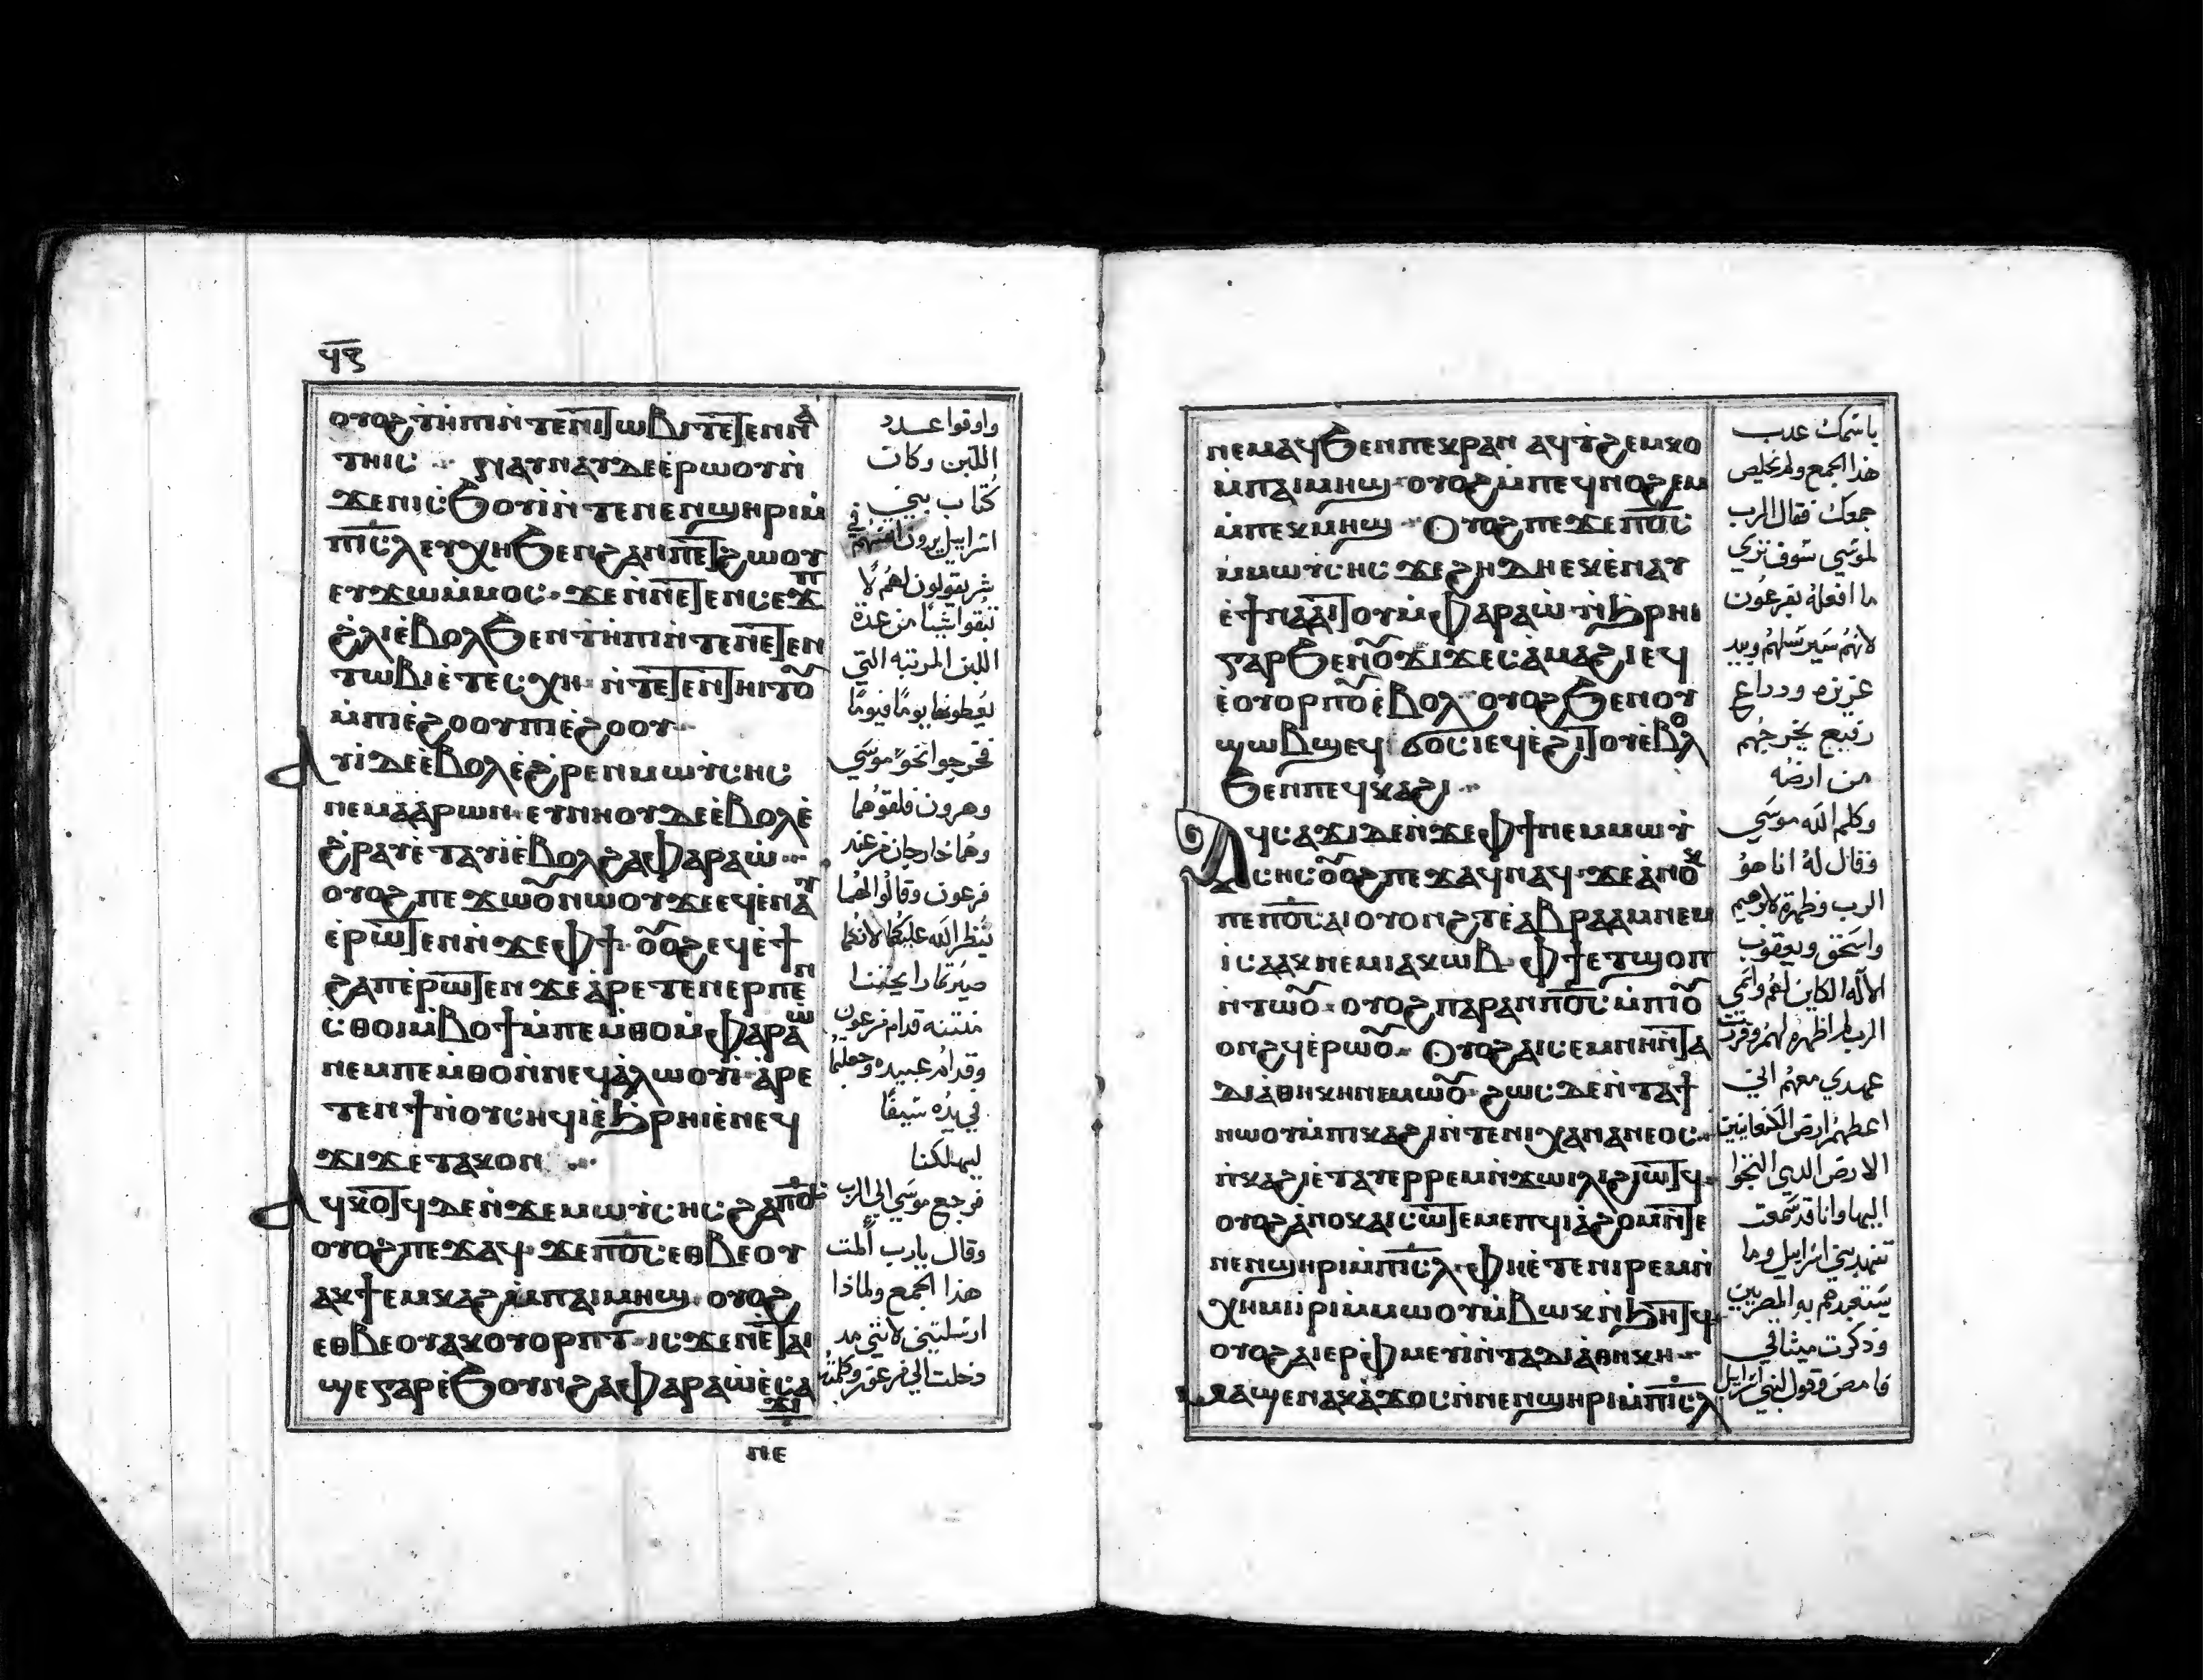 ⲟⲩⲟϩ ϯⲏⲡⲓ ⲛ̀ⲧⲉⲛⲓⲧⲱⲃⲓ ⲧⲉⲧⲉⲛⲛⲁ
ⲧⲏⲓⲥ
ϫⲉⲛⲓⲥϧⲟⲩⲓ ⲛ̀ⲧⲉⲛⲉⲛϣⲏⲣⲓ ⲙ̀
ⲡⲓⲥ̅ⲗ ⲉⲩⲭⲏ ϧⲉⲛ ϩⲁⲛⲡⲉⲧϩⲱⲟⲩ
ⲉⲩϫⲱ ⲙ̀ⲙⲟⲥ ϫⲉ ⲛ̀ⲛⲉⲧⲉⲛⲥⲉϫⲡ
ϩ̀ⲗⲓ ⲉ̀ⲃⲟⲗ ϧⲉⲛ ϯⲏⲡⲓ ⲛ̀ⲧⲉⲛⲉⲧⲉⲛ
ⲧⲱⲃⲓ ⲉⲧⲉⲥⲭⲏ
ⲙ̀ⲡⲓⲉ̀ϩⲟⲟⲩ ⲡⲓⲉ̀ϩⲟⲟⲩ
ⲁⲩⲓ̀ ⲇⲉ ⲉ̀ⲃⲟⲗ ⲉ̀ϩ̀ⲣⲉⲛ ⲙⲱⲩ̀ⲥⲏⲥ
ⲛⲉⲙ ⲁ̀ⲁⲣⲱⲛ ⲉⲩⲛⲏⲟⲩ ⲇⲉ ⲉ̀ⲃⲟⲗ ⲉ̀
ϩ̀ⲣⲁⲩ ⲉⲧⲁⲩⲓ̀ ⲉ̀ⲃⲟⲗ ϩⲁ ⲫⲁⲣⲁⲱ̀
ⲟⲩⲟϩ ⲡⲉϫⲱⲟⲩ ⲛⲱⲟⲩ ϫⲉ ⲉϥⲉ̀ⲛⲁⲩ
ⲉ̀ⲣⲱⲧⲉⲛ ⲛ̀ϫⲉ ⲫϯ ⲟⲩⲟϩ ⲉϥⲉ̀ϯ
ϩⲁⲡ ⲉ̀ⲣⲱⲧⲉⲛ ϫⲉ ⲁ̀ⲣⲉⲧⲉⲛⲉⲣⲡⲉⲛ
ⲥ̀ⲑⲟⲓ ⲙ̀ⲃⲟϯ ⲙ̀ⲡⲉⲙ̀ⲑⲟ ⲙ̀ⲫⲁⲣⲁⲱ
ⲛⲉⲙ ⲡⲉⲙ̀ⲑⲟ ⲛ̀ⲛⲉϥⲁ̀ⲗⲱⲟⲩⲓ̀ ⲁ̀ⲣⲉ
ⲧⲉⲛϯ ⲛ̀ⲟⲩⲥⲏϥⲓ ⲉ̀ϧ̀ⲣⲏⲓ ⲉ̀ⲛⲉϥ
ϫⲓϫ ⲉⲧⲁⲕⲟⲛ
ⲁϥⲕⲟⲧϥ ⲇⲉ ⲛ̀ϫⲉ ⲙⲱⲩ̀ⲥⲏⲥ ϩⲁ ⲡⲟ̅ⲥ̅
ⲟⲩⲟϩ ⲡⲉϫⲁϥ ϫⲉ ⲡⲟ̅ⲥ̅ ⲉⲑⲃⲉⲟⲩ
ⲁⲕϯⲉⲙⲕⲁϩ ⲙ̀ⲡⲁⲓⲙⲏϣ ⲟⲩⲟϩ
ⲉⲑⲃⲉⲟⲩ ⲁⲕⲟⲩⲟⲣⲡⲧ ⲓⲥϫⲉⲛ ⲉⲧⲁⲓ
ϣⲉ ⲅⲁⲣ ⲉ̀ϧⲟⲩⲛ ϩⲁ ⲫⲁⲣⲁⲱ̀ ⲉ̀ⲥⲁ
ϫⲓ
ⲛⲉ
واوقوا عدد
اللبن وكان
كتاب بني
اسراييل يرون انفسهم في
شر يقولون لهم لا
تبقوا شيا من عدة
اللبن المرتبه التي
يعطونها يوما فيوما
فخرجوا نحو موسي
وهرون فلقوهما
وهما خارجان من عند
فرعون وقالوا لهما
ينظر الله عليكما لانكما
منتنه قدام فرعون
وقدام عبيده وجعلتما
في يده سيفا
ليهلكنا
فرجع موسي الي الرب
وقال يارب المت
هذا الجمع ولماذا
ارسلتني لانني مد
دخلت الي فرعون وكلمته
ⲛⲉⲙⲁϥ ϧⲉⲛ ⲡⲉⲕⲣⲁⲛ ⲁϥⲧ̀ϩⲉⲙⲕⲟ
ⲙ̀ⲡⲁⲓⲙⲏϣ ⲟⲩⲟϩ ⲙ̀ⲡⲉϥⲛⲟϩⲉⲙ
ⲙ̀ⲡⲉⲕⲙⲏϣ ⲟⲩⲟϩ ⲡⲉϫⲉ ⲡⲟ̅ⲥ̅
ⲙ̀ⲙⲱⲩ̀ⲥⲏⲥ ϫⲉ ϩⲏⲇⲏ ⲉⲕⲉ̀ⲛⲁⲩ
ⲉ̀ϯⲛⲁⲁⲓⲧⲟⲩ ⲙ̀ⲫⲁⲣⲁⲱ̀ ⲛ̀ϧ̀ⲣⲏⲓ
ⲅⲁⲣ ϧⲉⲛ ⲟⲩϫⲓϫ ⲉⲥⲁ̀ⲙⲁϩⲓ ⲉϥ
ⲉ̀ⲟⲩⲟⲣⲡⲟⲩ ⲉ̀ⲃⲟⲗ ⲟⲩⲟϩ ϧⲉⲛ ⲟⲩ
ϣⲱⲃϣ ⲉϥϭⲟⲥⲓ ⲉϥⲉ̀ϩⲓⲧⲟⲩ ⲉ̀ⲃⲟⲗ
ϧⲉⲛ ⲡⲉϥⲕⲁϩⲓ
ⲁϥⲥⲁϫⲓ ⲇⲉ ⲛ̀ϫⲉ ⲫϯ ⲛⲉⲙ ⲙⲱⲩ̀
ⲥⲏⲥ ⲟⲩⲟϩ ⲡⲉϫⲁϥ ⲛⲁϥ ϫⲉ ⲁ̀ⲛⲟⲕ
ⲡⲉ ⲡⲟ̅ⲥ̅ ⲁⲓⲟⲩⲟⲛϩⲧ ⲉ̀ⲁⲃⲣⲁⲁⲙ ⲛⲉⲙ
ⲓⲥⲁⲁⲕ ⲛⲉⲙ ⲓⲁⲕⲱⲃ ⲫϯ ⲉⲧϣⲟⲡ
ⲛ̀ⲧⲱⲟⲩ ⲟⲩⲟϩ ⲡⲁⲣⲁⲛ ⲡⲟ̅ⲥ̅ ⲙ̀ⲡⲓⲟⲩ
ⲟⲛϩϥ ⲉ̀ⲣⲱⲟⲩ ⲟⲩⲟϩ ⲁⲓⲥⲉⲙⲛⲏⲛ̀ⲧⲁ
ⲇⲓⲁ̀ⲑⲏⲕⲏ ⲛⲉⲙⲱⲟⲩ ϩⲱⲥ ⲇⲉ ⲛ̀ⲧⲁϯ
ⲛⲱⲟⲩ ⲙ̀ⲡⲓⲕⲁϩⲓ ⲛ̀ⲧⲉⲛⲓⲭⲁⲛⲁⲛⲉⲟⲥ
ⲡ̀ⲕⲁϩⲓ ⲉ̀ⲧⲁⲩⲉⲣⲣⲉⲙⲛ̀ϫⲱⲓⲗⲓ ϩⲓⲱⲧϥ
ⲟⲩⲟϩ ⲁ̀ⲛⲟⲕ ⲁⲓⲥⲱⲧⲉⲙ ⲉⲡϥⲓⲁ̀ϩⲟⲙ ⲛ̀ⲧⲉ
ⲛⲉⲛϣⲏⲣⲓ ⲙ̀ⲡⲓⲥ̅ⲗ ⲫⲏ ⲉⲧⲉ ⲛⲓⲣⲉⲙⲛ̀
ⲭⲏⲙⲓ ⲓⲣⲓ ⲙ̀ⲙⲱⲟⲩ ⲙ̀ⲃⲱⲕ ⲛ̀ϧⲏⲧϥ
ⲟⲩⲟϩ ⲁⲓⲉⲣⲫⲙⲉⲩⲓ̀ ⲛ̀ⲧⲁⲇⲓⲁ̀ⲑⲏⲕⲏ
ⲙⲁϣⲉⲛⲁⲕ ⲁ̀ϫⲟⲥ ⲛ̀ⲛⲉⲛϣⲏⲣⲓ ⲙ̀ⲡⲓⲥ̅ⲗ
باسمك عدب
هذا الجمع ولم تخلص
جمعك فقال الرب
لموسي سوف تري
ما افعله بفرعون
لانهم سيرسلهم وبيد
عزيزه ودراع
رفيع يخرجهم
من ارضه
وكلم الله موسي
فقال له انا هو
الرب وظهرت لابرهيم
واسحق ويعقوب
الاله الكاين لهم واسمي
الرب لم اظهره لهم وقررت
عهدي معهم اني
اعطيهم ارض الكنعانيين
الارض الدي التجوا
اليها وانا قد سمعت
تنهد بني اسراييل وما
يستعبدهم به المصريين
وذكرت ميثاقي
فامض وقول لبني اسراييل